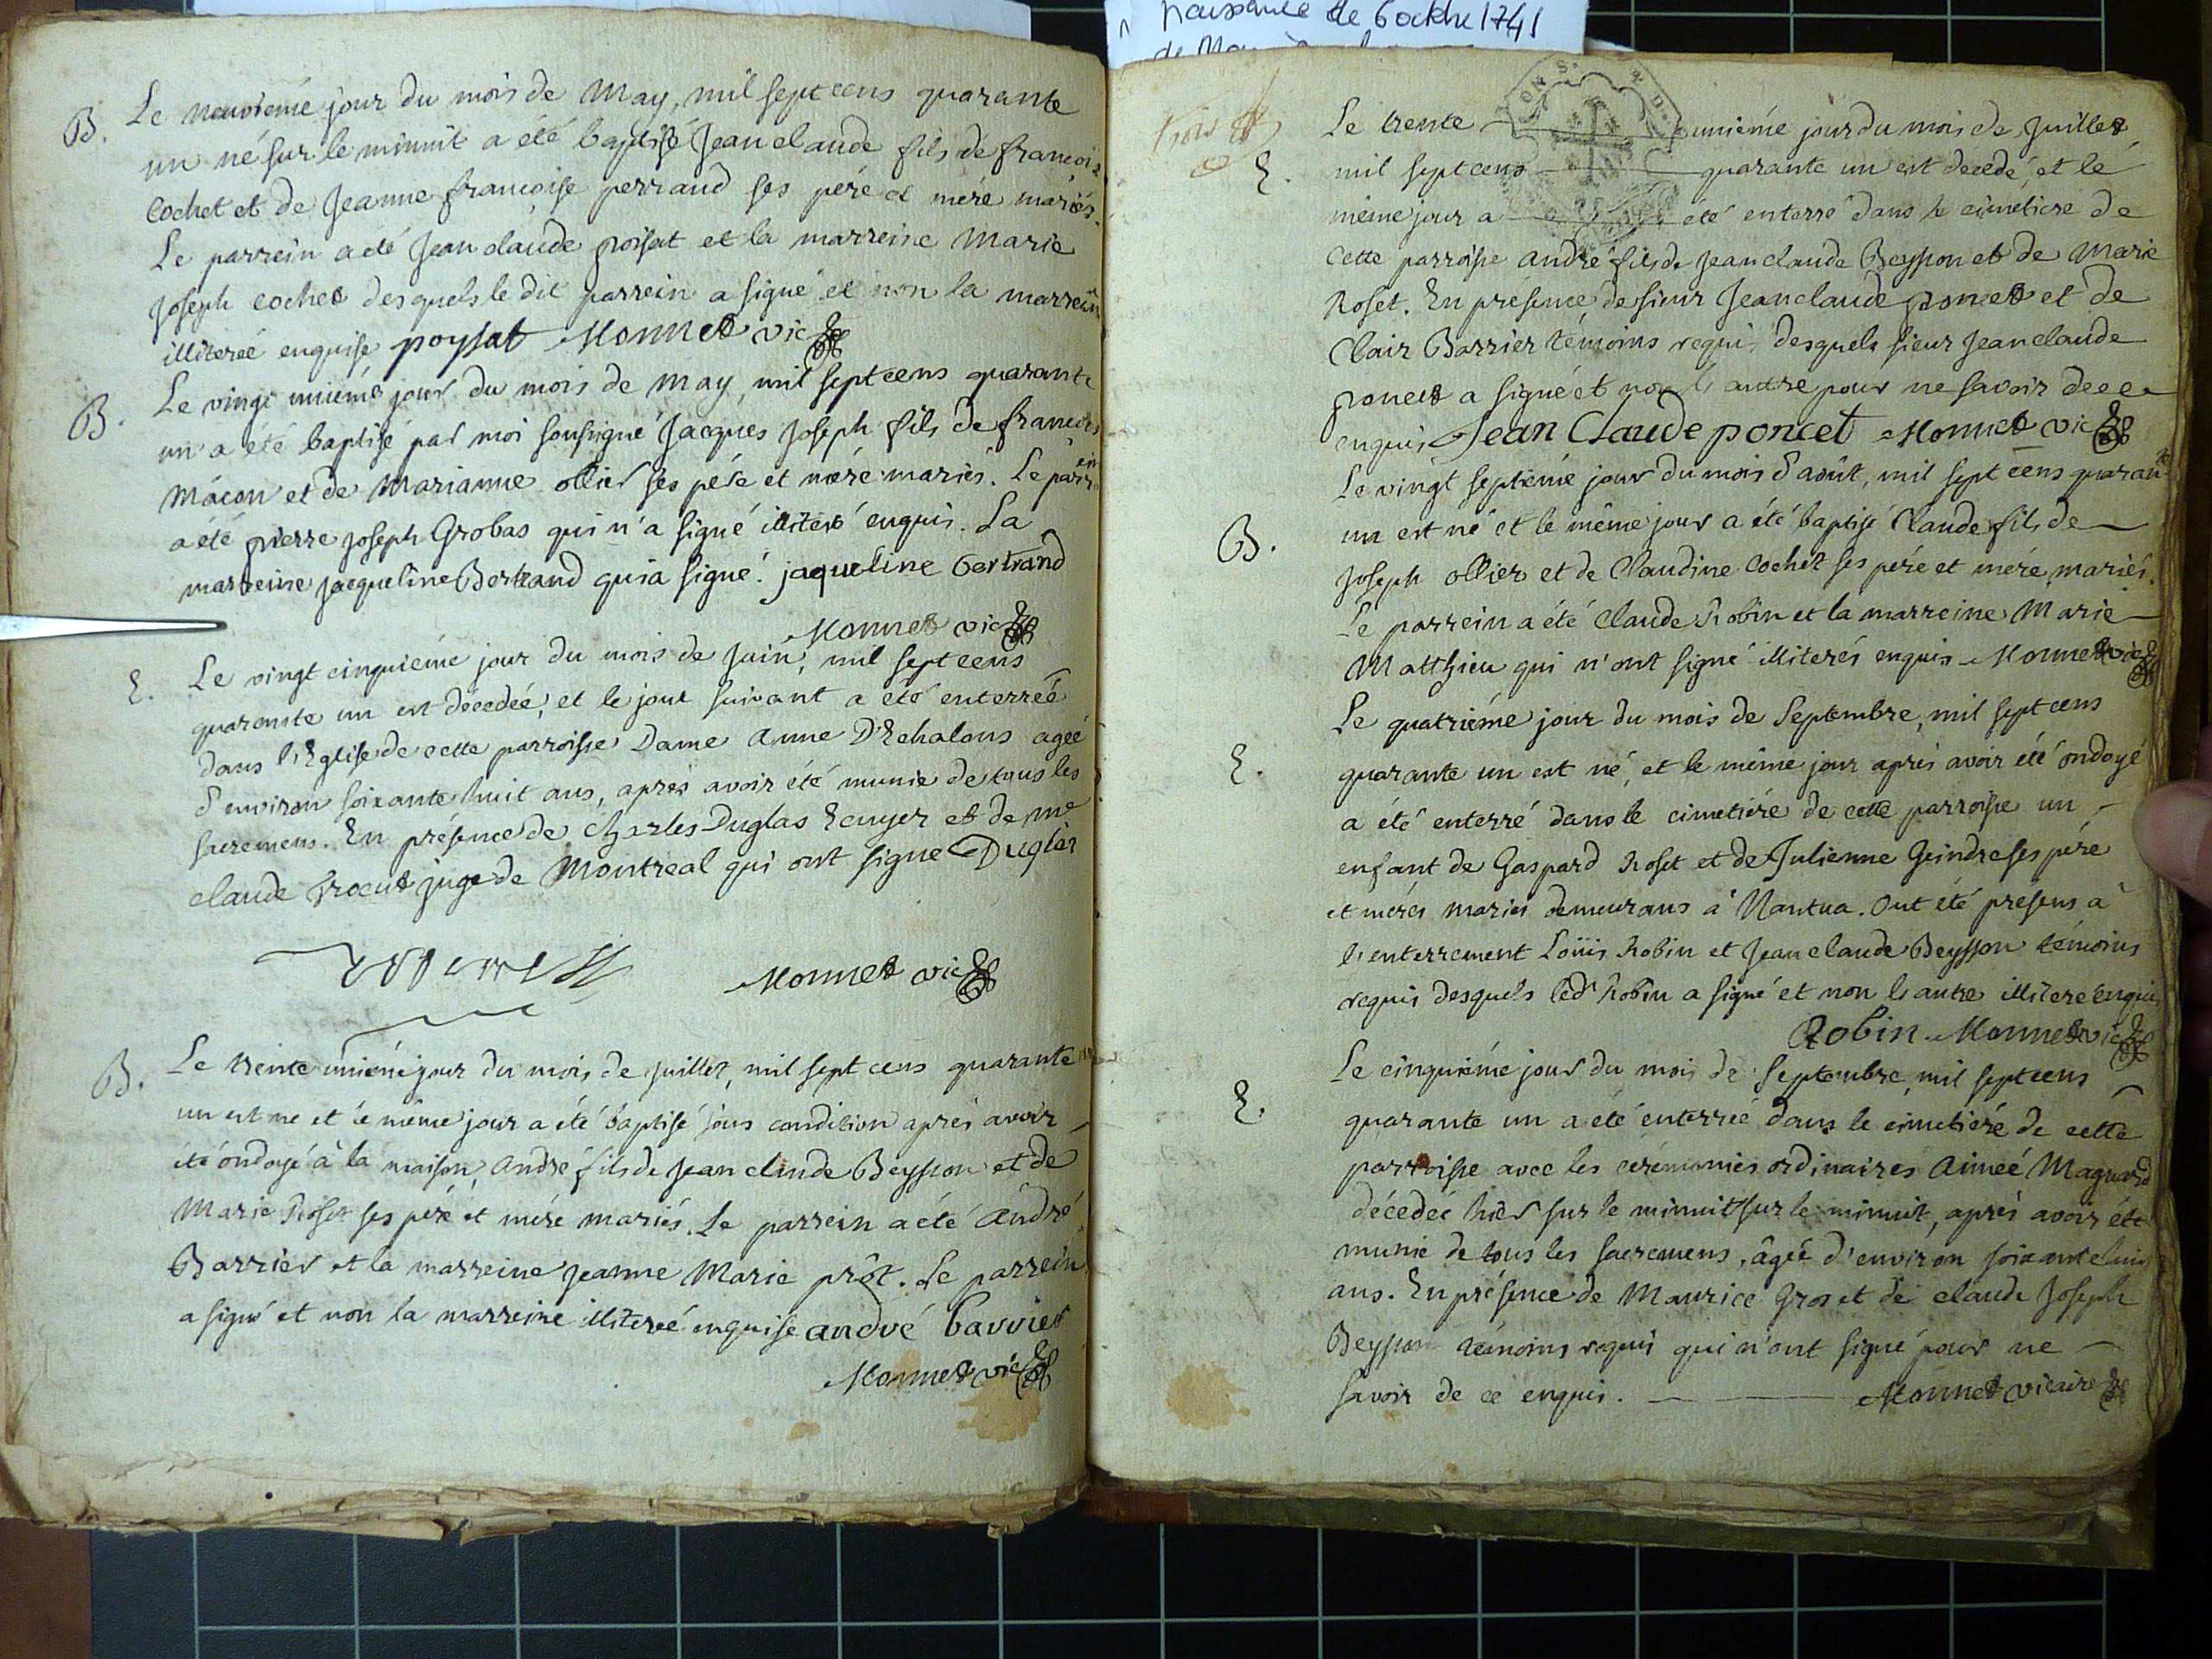 B. Le neuviemé jour du mois de May, mil sept cens quarante
un né sur le minuit a été baptisé Jean claude fils de francois
Cochet et de Jeanne françoise perraud ses péré et méré mariés.
Le parrein a été Jean claude poisat et la marreine Marie
Joseph cochet desquels le dit parrein a signé et non la marreine
illiteréé enquise poysat Monnet vic
B. Le vingt uniémé jour du mois de May, mil sept cens quarante
un a été baptisé par moi soussigné Jacques Joseph fils de francois
Mâcon et de Marianne ollier ses péré et méré mariés. Le parrein
a été pierre Joseph Grobas qui n'a signé illiteré enquis. La
marreine Jacqueline Bertrand qui a signé. jaqueline bertrand
Monnet vic
E. Le vingt cinquiémé jour du mois de Juin, mil sept cens
quarante un est décedéé, et le jour suivant a été enterréé
dans l'Eglise de cette parroisse Dame Anne D'Echalons agéé
d'environ soixante huit ans, aprés avoir été munie de tous les
sacremens. En présence de Charles Duglas Ecuyer et de me
claude juge de Montreal qui ont signé Duglas
Monnet vic
B. Le trente uniémé jour du mois de juillet, mil sept cens quarante
un est né et le même jour a été baptisé sous condition aprés avoir
été ondoyé à la maison, André fils de Jean claude Beysson et de
Marie Roset ses péré et méré mariés. Le parrein a été André
Barrier et la marreine Jeanne Marie prôt. Le parrein
a signé et non la marreine illiteréé enquise andré barrier
Monnet vic
naissance de 1741
Le trente uniémé jour du mois de Juillet,
E. mil sept cens quarante un est décedé, et le
même jour a été enterré dans le cimetiere de
cette parroisse André fils de Jean claude Beysson et de Marie
Roset. En presence de sieur Jean claude poncet et de
Clair Barrier témoins requis, desquels sieur Jean claude
poncet a signé et non l'autre pour ne savoir de ce
enquis Jean Claude poncet Monnet vic
Le vingt septiémé jour du mois d'août, mil sept cens quarante
B. un est né et le même jour a été baptisé Claude fils de
Joseph ollier et de Claudine Cochet ses péré et méré mariés.
Le parrein a été Claude Robin et la marreine Marie
Matthieu qui n'ont signé illiterés enquis Monnet vic
Le quatriémé jour du mois de Septembre, mil sept cens
E. quarante un est né, et le même jour aprés avoir été ondoyé
a été enterré dans le cimetiére de cette parroisse un
enfant de Gaspard Roset et de Julienne Geindre ses péré
et mérés mariés demeurans à Nantua. Ont été présens à
l'enterrement Loüis Robin et Jean claude Beysson témoins
requis desquels led. Robin a signé et non l'autre illiteré enquis
Robin Monnet vic
Le cinquiémé jour du mois de Septembre mil sept cens
E. quarante un a été enterréé dans le cimetiéré de cette
parroisse avec les cérémonies ordinaires Aiméé
décedéé hier sur le minuit sur le minuit, aprés avoir été
munie de tous les sacremens, âgéé d'environ
ans. En présence de Maurice Gros et de claude Joseph
Beysson témoins requis qui n'ont signé pour ne
savoir de ce enquis. Monnet vicaire